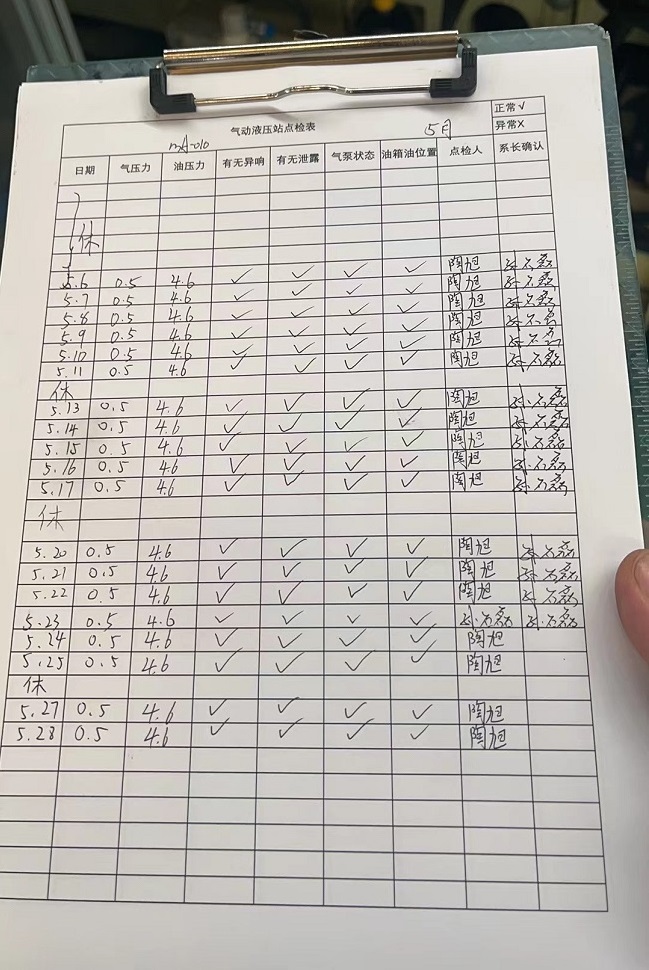 正常√
异常X
气动液压站点检表 5月
日期 气压力 油压力 有无异响 有无泄露 气泵状态 油箱油位置 点检人 系长确认
休
5.6 0.5 4.6 ✓ ✓ ✓ ✓ 陶旭
5.7 0.5 4.6 ✓ ✓ ✓ ✓ 陶旭
5.8 0.5 4.6 ✓ ✓ ✓ ✓ 陶旭
5.9 0.5 4.6 ✓ ✓ ✓ ✓ 陶旭
5.10 0.5 4.6 ✓ ✓ ✓ ✓ 陶旭
5.11 0.5 4.6 ✓ ✓ ✓ ✓ 陶旭
休
5.13 0.5 4.6 ✓ ✓ ✓ ✓ 陶旭
5.14 0.5 4.6 ✓ ✓ ✓ ✓ 陶旭
5.15 0.5 4.6 ✓ ✓ ✓ ✓ 陶旭
5.16 0.5 4.6 ✓ ✓ ✓ ✓ 陶旭
5.17 0.5 4.6 ✓ ✓ ✓ ✓ 陶旭
休
5.20 0.5 4.6 ✓ ✓ ✓ ✓ 陶旭
5.21 0.5 4.6 ✓ ✓ ✓ ✓ 陶旭
5.22 0.5 4.6 ✓ ✓ ✓ ✓ 陶旭
5.23 0.5 4.6 ✓ ✓ ✓ ✓
5.24 0.5 4.6 ✓ ✓ ✓ ✓ 陶旭
5.25 0.5 4.6 ✓ ✓ ✓ ✓ 陶旭
休
5.27 0.5 4.6 ✓ ✓ ✓ ✓ 陶旭
5.28 0.5 4.6 ✓ ✓ ✓ ✓ 陶旭